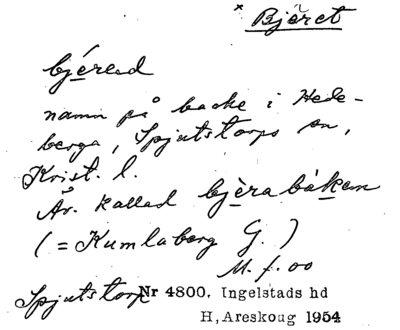 * Bjëret
bjéred
namn på backe i Hede-
berga, Spjutstorps sn,
Krist. l.
Äv. kallad bjèrabáken
(= Kumlaberg G.)
M. f. 00
Spjutstorp Nr 4800. Ingelstads hd
H, Areskoug 1954